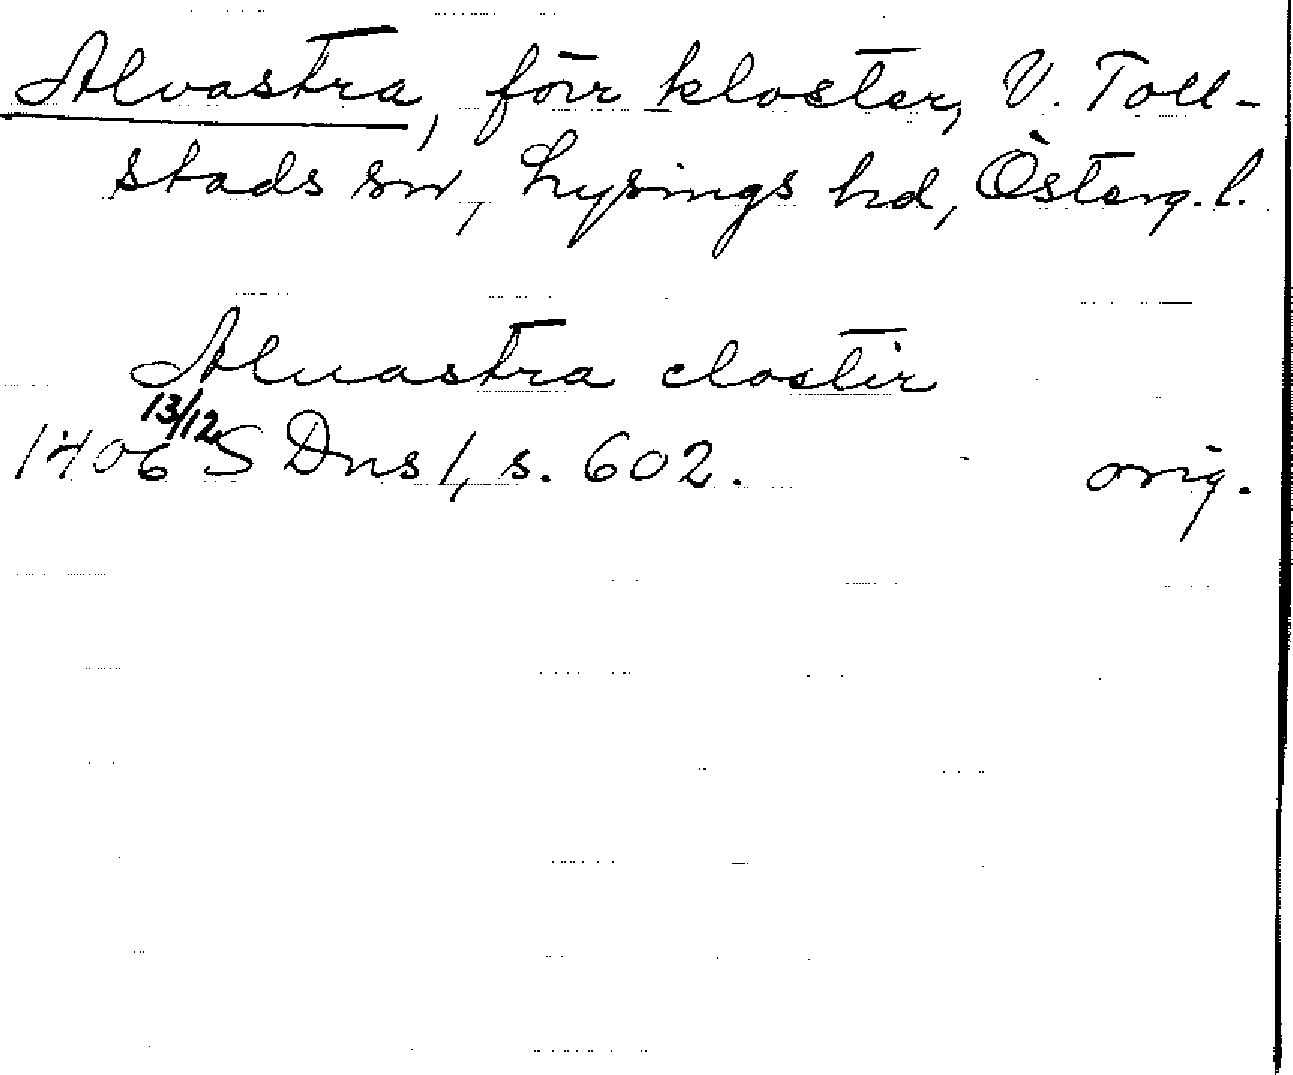 Alvastra, förr kloster, V. Toll-
stads sn, Lysings hd, Österg. l.
Aluastra clostir
1406 13/12 S Dns 1, s. 602. orig.